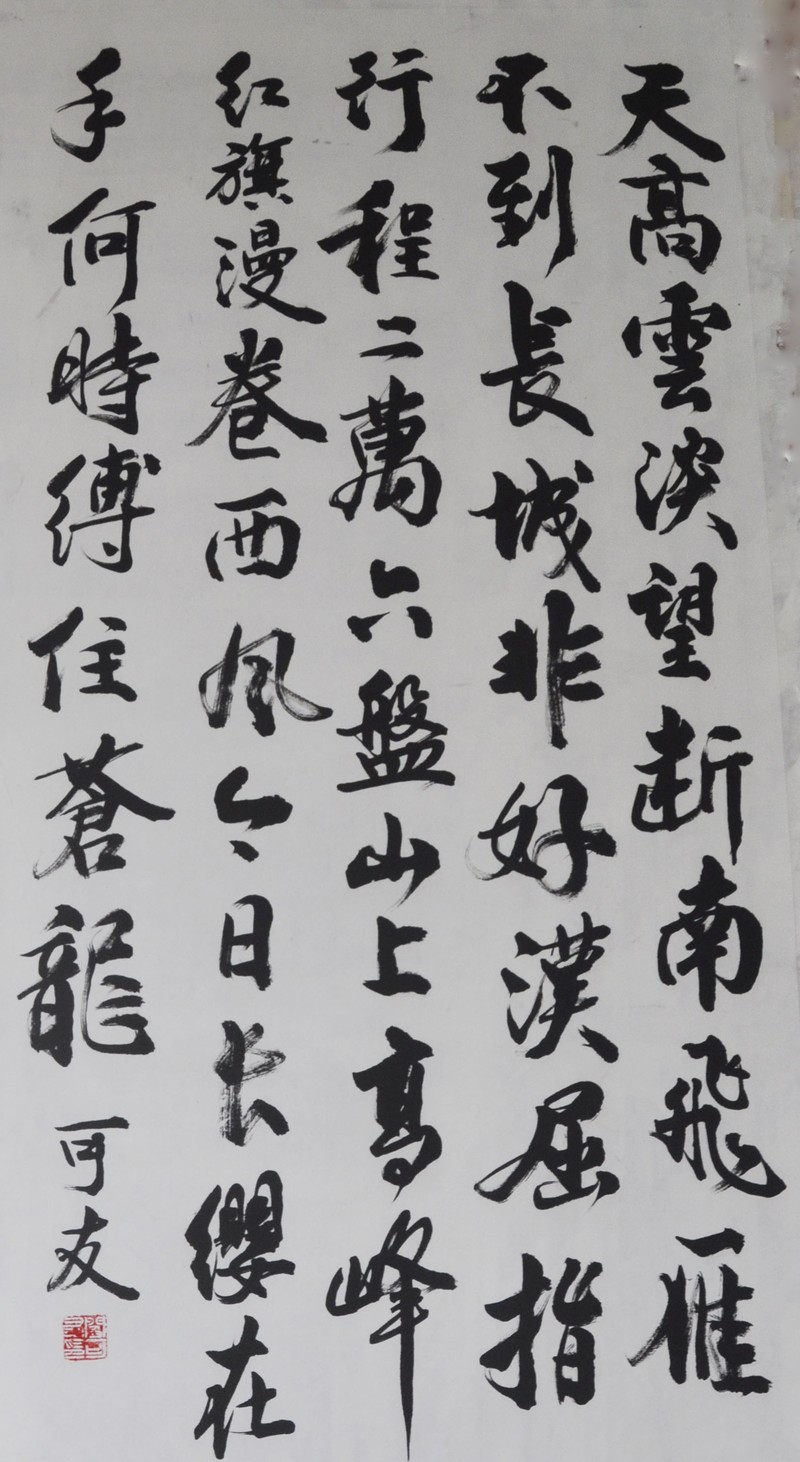 天高雲淡望断南飛雁
不到長城非好漢屈指
行程二萬六盤山上高峰
红旗漫卷西风今日长纓在
手何時縛住蒼龍
可友